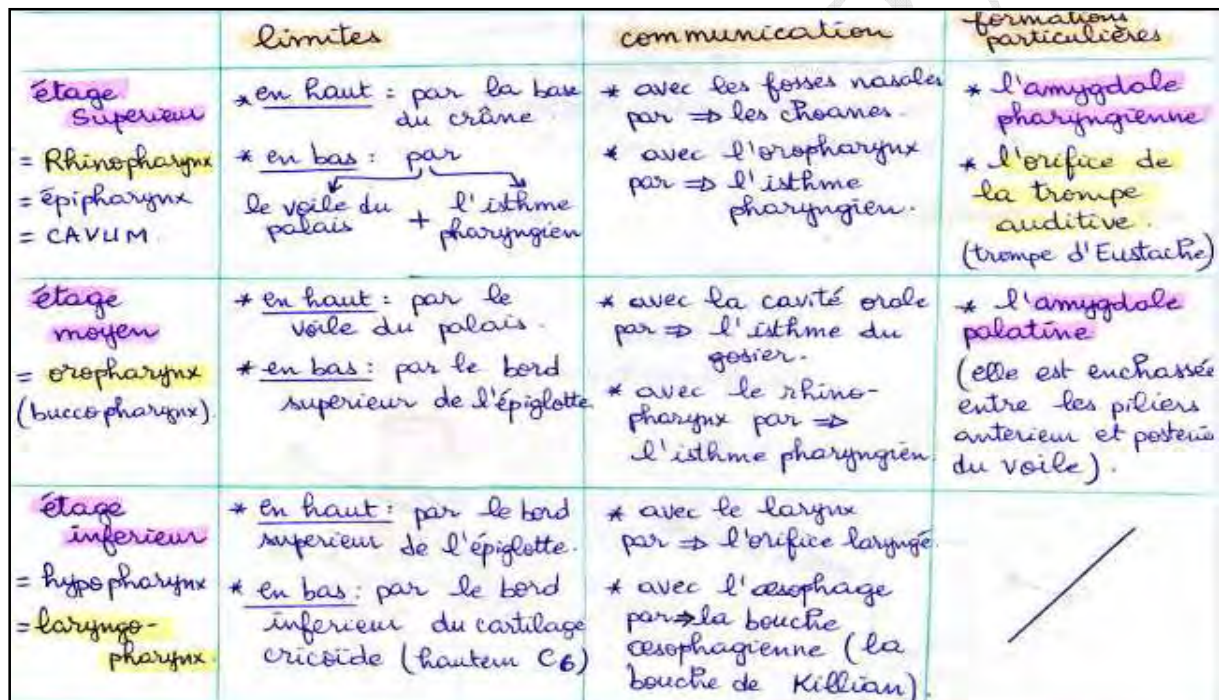 limites
communication
formations
particulières
étage
Superieur
= Rhinopharynx
= épipharynx
= CAVUM.
* en haut : par la base
du crâne.
* en bas : par
le voile du
palais
+
l'isthme
pharyngien
* avec les fosses nasales
par ⇒ les choanes.
* avec l'oropharynx
par ⇒ l'isthme
pharyngien.
* l'amygdale
pharyngienne
* l'orifice de
la trompe
auditive.
(trompe d'Eustache)
étage
moyen
= oropharynx
(buccopharynx).
* en haut : par le
voile du palais.
* en bas : par le bord
superieur de l'épiglotte.
* avec la cavité orale
par ⇒ l'isthme du
gosier.
* avec le rhino-
pharynx par ⇒
l'isthme pharyngien.
* l'amygdale
palatine
(elle est enchassée
entre les piliers
anterieur et posterie
du voile).
étage
inferieur
= hypopharynx
= laryngo-
pharynx.
* en haut : par le bord
superieur de l'épiglotte.
* en bas : par le bord
inferieur du cartilage
cricoïde (hauteur C6)
* avec le larynx
par ⇒ l'orifice laryngé.
* avec l'œsophage
par ⇒ la bouche
œsophagienne (la
bouche de Killian).